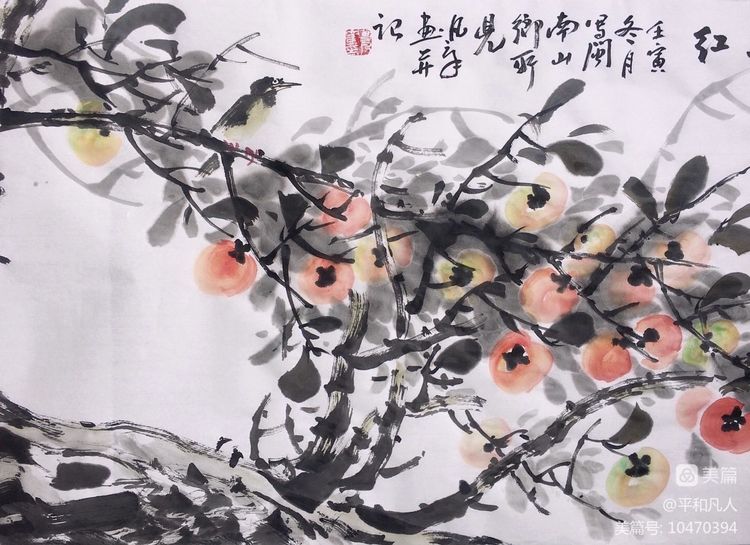 红
壬寅
冬月
写闽
南山
乡所
见
凡辛
画并
记
美篇
@平和凡人
美篇号: 10470394